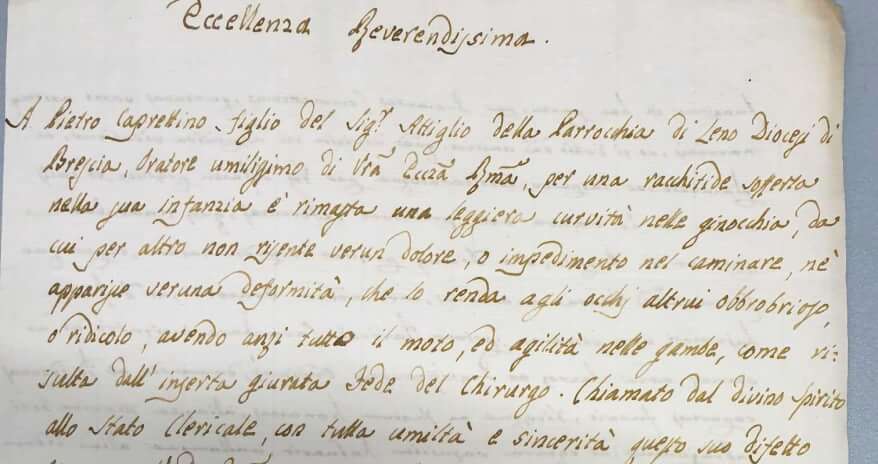 Eccellenza Reverendissima.
A Pietro Caprettino figlio del Sigr. Attiglio della Parrocchia di Leno Diocesi di
Brescia, Oratore umilissimo di Vrã Ecczã Rmã, per una racchitide sofferta
nella sua infanzia è rimasta una leggiera curvità nelle ginocchia, da
cui per altro non risente verun dolore, o impedimento nel caminare, nè
apparisce veruna deformità, che lo renda agli occhj altrui obbrobrioso,
o ridicolo, avendo anzi tutto il moto, ed agilità nelle gambe, come ri=
sulta dall'inserta giurata Fede del Chirurgo. Chiamato dal divino spirito
allo Stato Clericale, con tutta umiltà e sincerità questo suo difetto